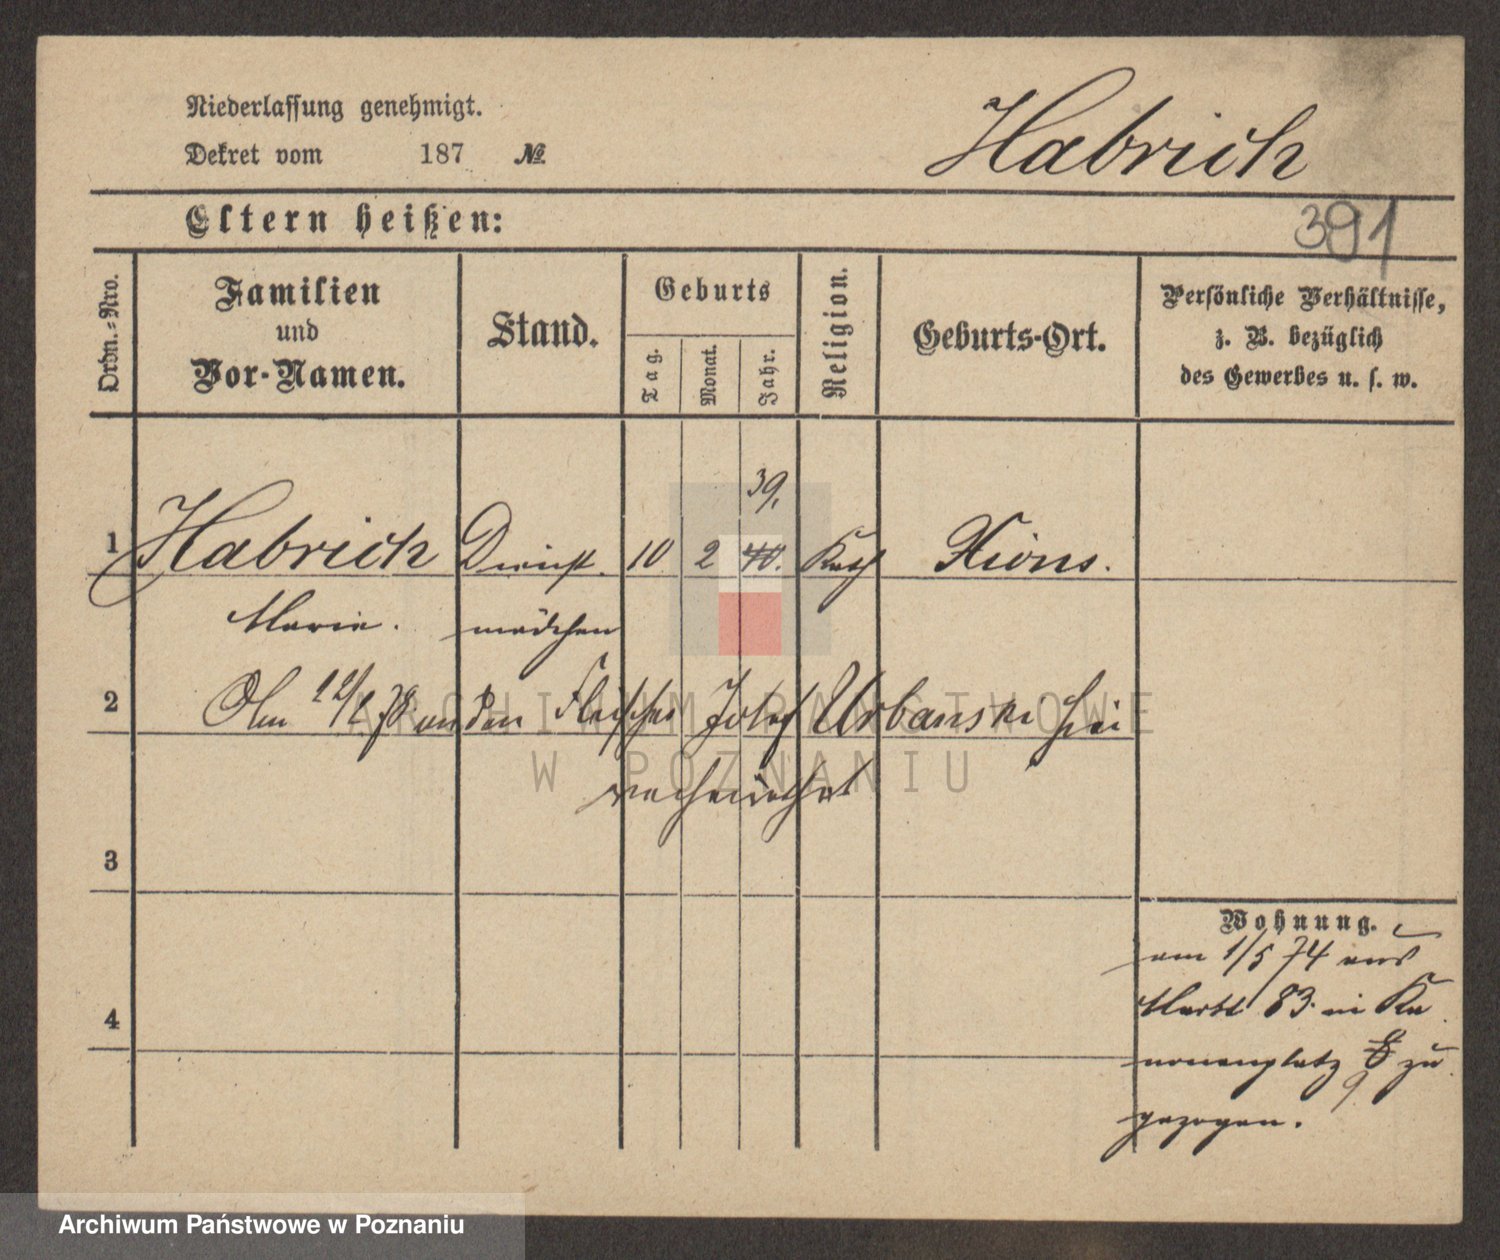 Niederlassung genehmigt.
Dekret vom 187 №
Habrich
Eltern heißen:
391
Ordn.-Nro.
Familien
und
Vor-Namen.
Stand.
Geburts
Tag.
Monat.
Jahr.
Religion.
Geburts-Ort.
Persönliche Verhältnisse,
z. B. bezüglich
des Gewerbes u. s. w.
39.
1 Habrich Dienst 10 2 40. Kath Xions.
Marie. mädchen
2 Am 12/2 78 an den Fleischer Josef Urbanski hier
verheirathet
3
Wohnung.
am 1/5 74 aus
Markt 83 in Ka
4
nonenplatz 8 zu
9
gezogen.
ARCHIWUM PAŃSTWOWE
W POZNANIU
Archiwum Państwowe w Poznaniu